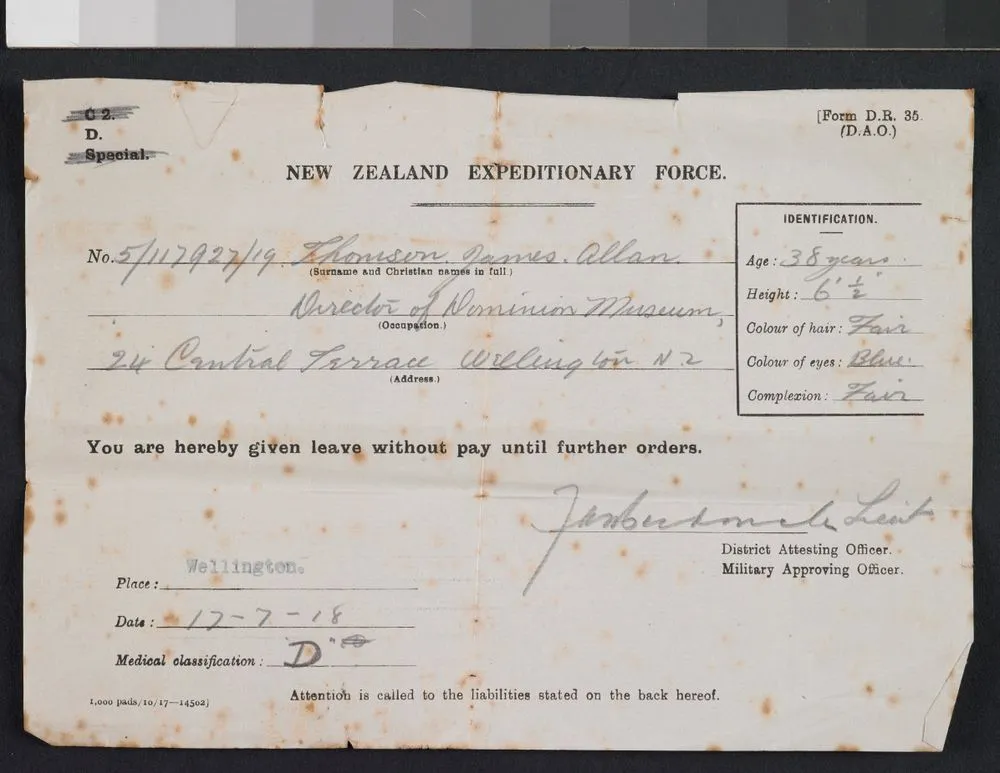 C 2.
D.
Special.
[Form D.R. 35.
(D.A.O.)
NEW ZEALAND EXPEDITIONARY FORCE.
No. 5/117927/19 Thomson. James. Allan.
(Surname and Christian names in full.)
Director of Dominion Museum,
(Occupation.)
24 Central Terrace Wellington N.Z
(Address.)
IDENTIFICATION.
Age: 38 years.
Height: 6' ½"
Colour of hair: Fair
Colour of eyes: Blue.
Complexion: Fair
You are hereby given leave without pay until further orders.
Lieut
District Attesting Officer.
Military Approving Officer.
Place: Wellington.
Date: 17-7-18
Medical classification: "D"
Attention is called to the liabilities stated on the back hereof.
1,000 pads/10/17—14502]